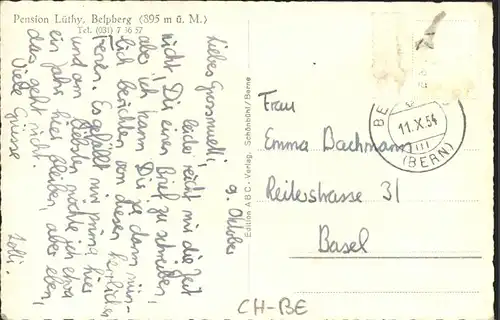 Pension Lüthy, Belpberg (895 m ü. M.)
Tel. (031) 7 36 57
9. Oktober
Liebes Grossmuetti,
leider reicht mir die Zeit
nicht, Dir einen Brief zu schreiben,
aber ich kann Dir ja dann münd-
lich berichten von diesen herrlichen
Ferien. Es gefällt mir prima hier
und am liebsten möchte ich etwa
ein Jahr hier bleiben, aber eben,
das geht nicht.
Viele Grüsse
Edition ABC-Verlag, Schönbühl/Berne
11.X.54
III
(BERN)
Frau
Emma Bachmann
Reiterstrasse 31
Basel
CH-BE